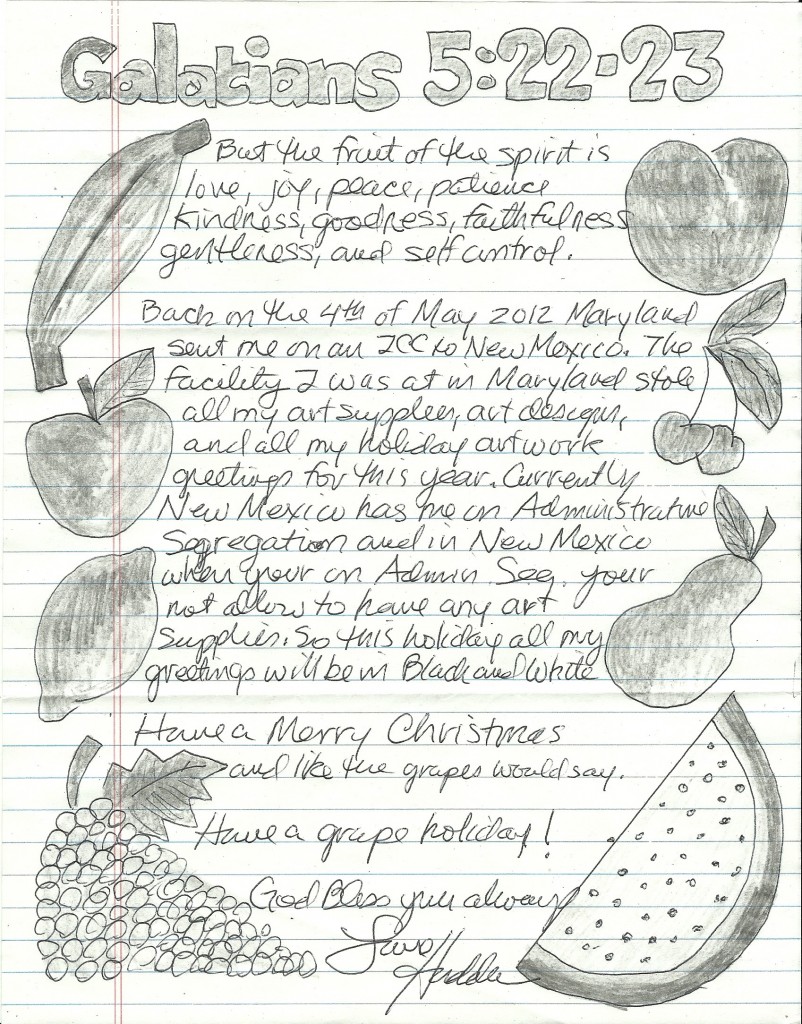 Galatians 5:22-23
But the fruit of the spirit is
love, joy, peace, patience
kindness, goodness, faithfulness
gentleness, and self control.
Back on the 4th of May 2012 Maryland
sent me on an ICC to New Mexico. The
facility I was at in Maryland stole
all my art supplies, art designs,
and all my holiday artwork
greetings for this year. Currently
New Mexico has me on Administrative
Segregation and in New Mexico
when your on Admin. Seg. your
not allow to have any art
supplies. So this holiday all my
greetings will be in Black and White
Have a Merry Christmas
and like the grapes would say.
Have a grape holiday!
God Bless you always